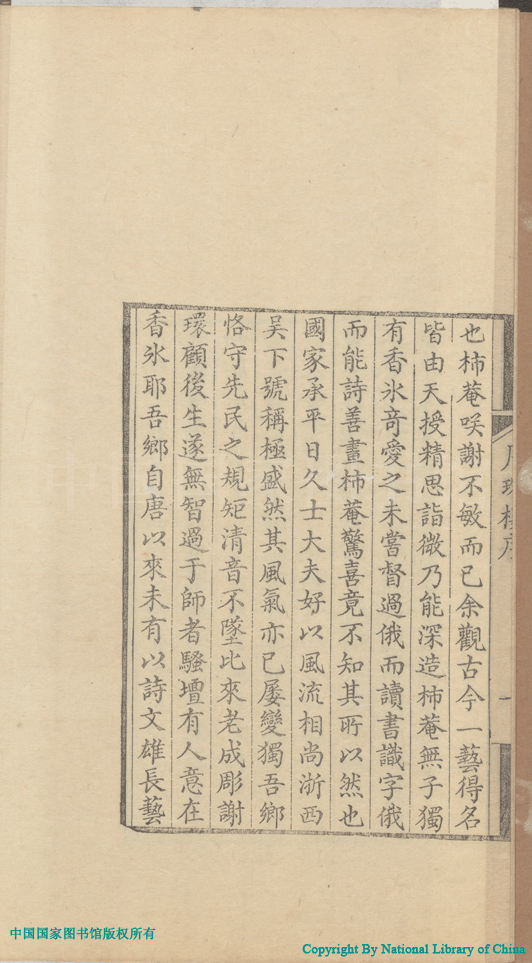 也柿菴咲謝不敏而已余觀古今一藝得名
皆由天授精思詣微乃能深造柿菴無子獨
有香氷奇愛之未嘗督過俄而讀書識字俄
而能詩善畫柿菴驚喜竟不知其所以然也
國家承平日久士大夫好以風流相尚浙西
吴下號稱極盛然其風氣亦已屢變獨吾鄉
恪守先民之規矩清音不墜比來老成彫謝
環顧後生遂無智過于師者騷壇有人意在
香氷耶吾鄉自唐以來未有以詩文雄長藝
中国国家图书馆版权所有
Copyright By National Library of China